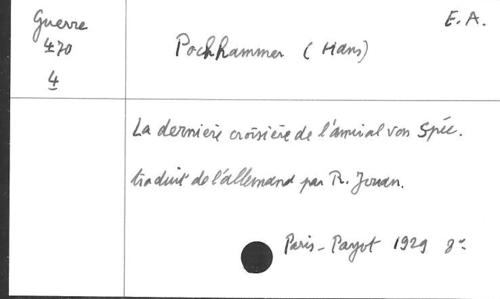 Guerre
470
4
E. A.
Pochhammer (Hans)
La dernière croisière de l'amiral von Spée.
traduit de l'allemand par R. Jouan.
Paris - Payot 1929 8°